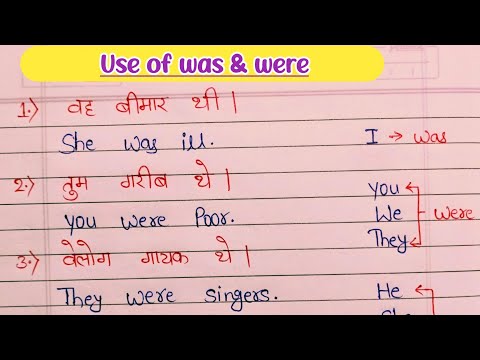 Use of was & were
1.) वह बीमार थी |
She was ill.
I → was
2.) तुम गरीब थे |
You were Poor.
You
We
were
They
3.) वेलोग गायक थे |
They were singers.
He